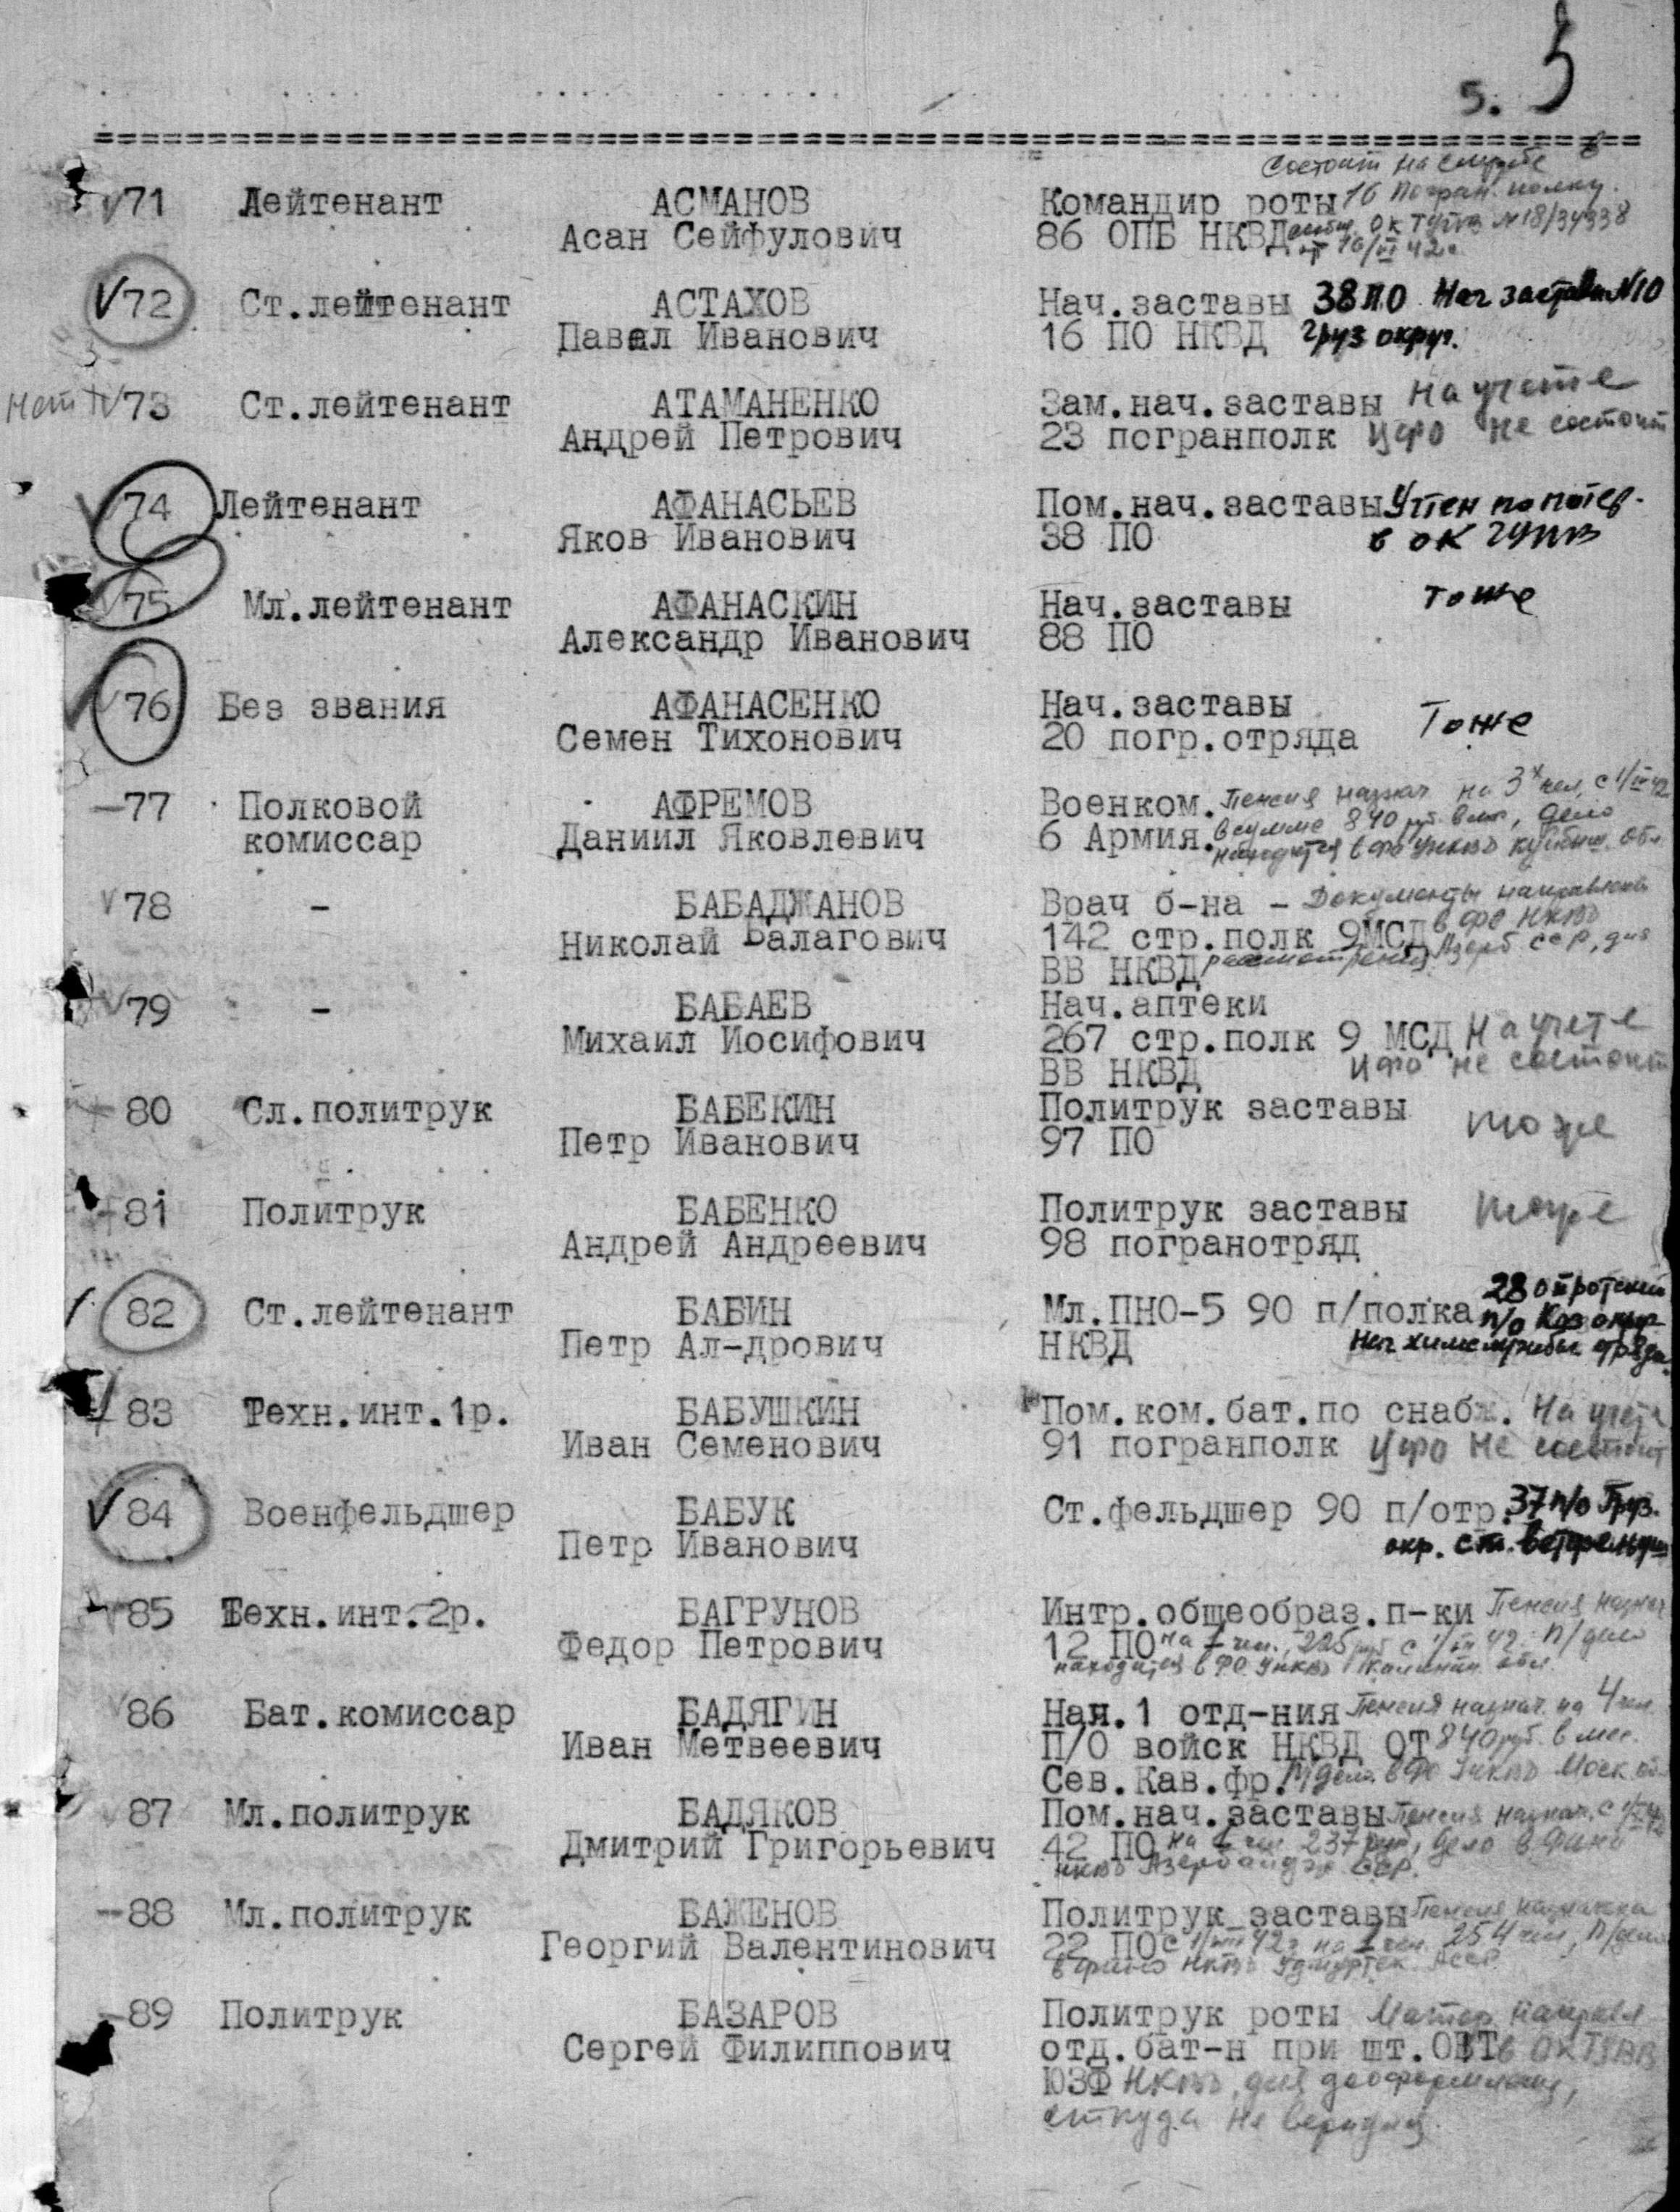 5. 5
Состоит на службе в
71 Лейтенант АСМАНОВ Командир роты 16 Погран. полку.
Асан Сейфулович 86 ОПБ НКВД ОК ГУПВ №18/34938
от 16/VI 42г.
72 Ст.лейтенант АСТАХОВ Нач.заставы 38 ПО Нач заставы №10
Павел Иванович 16 ПО НКВД Груз округ.
Нет 73 Ст.лейтенант АТАМАНЕНКО Зам.нач.заставы На учете
Андрей Петрович 23 погранполк ЦФО не состоит
74 Лейтенант АФАНАСЬЕВ Пом.нач.заставы Учтен по потер.
Яков Иванович 38 ПО в ОК ГУПВ
75 Мл.лейтенант АФАНАСКИН Нач.заставы тоже
Александр Иванович 88 ПО
76 Без звания АФАНАСЕНКО Нач.заставы
Семен Тихонович 20 погр.отряда Тоже
77 Полковой АФРЕМОВ Военком. Пенсия назнач на 3х чел, с 1/III 42
комиссар Даниил Яковлевич 6 Армия. в сумме 840 руб. в м, дело
находится в ФО УНКВД Куйбыш. обл
78 - БАБАДЖАНОВ Врач б-на - Документы направлены
Николай Балагович 142 стр.полк 9МСД в ФО НКВД
ВВ НКВД рассмотрения Азерб ССР, для
79 - БАБАЕВ Нач.аптеки
Михаил Иосифович 267 стр.полк 9 МСД На учете
ВВ НКВД ЦФО не состоит
80 Сл.политрук БАБЕКИН Политрук заставы тоже
Петр Иванович 97 ПО
81 Политрук БАБЕНКО Политрук заставы тоже
Андрей Андреевич 98 погранотряд
82 Ст.лейтенант БАБИН Мл.ПНО-5 90 п/полка 28
Петр Ал-дрович НКВД п/о Каз округ
Нач химслужбы отряда.
83 Техн.инт.1р. БАБУШКИН Пом.ком.бат.по снабж. На учете
Иван Семенович 91 погранполк ЦФО не состоит
84 Военфельдшер БАБУК Ст.фельдшер 90 п/отр. 37 п/о Груз.
Петр Иванович окр. ст.
85 Техн.инт.2р. БАГРУНОВ Интр.общеобраз.п-ки Пенсия назнач
Федор Петрович 12 ПО на 1 чел., 225 руб с 1/III 42. П/дело
находится в ФО УНКВД Калинин. обл.
86 Бат.комиссар БАДЯГИН Нач.1 отд-ния Пенсия назнач. на 4 чел
Иван Метвеевич П/О войск НКВД ОТ 840 руб. в мес.
Сев.Кав.фр. П/дело в ФО УНКВД Моск. об
87 Мл.политрук БАДЯКОВ Пом.нач.заставы Пенсия назнач. с
Дмитрий Григорьевич 42 ПО на 1 чел 237 руб, дело в Фино
НКВД Азербайдж ССР.
88 Мл.политрук БАЖЕНОВ Политрук заставы Пенсия назначена
Георгий Валентинович 22 ПО с 1/VIII 42 г на 1 чел. 254, П/дело
в фино НКВД Удмуртск. АССР
89 Политрук БАЗАРОВ Политрук роты Матер. направл
Сергей Филиппович отд.бат-н при шт.ОВТ в ОК ГУВВ
ЮЗФ НКВД, для дооформления,
откуда не вернулся.